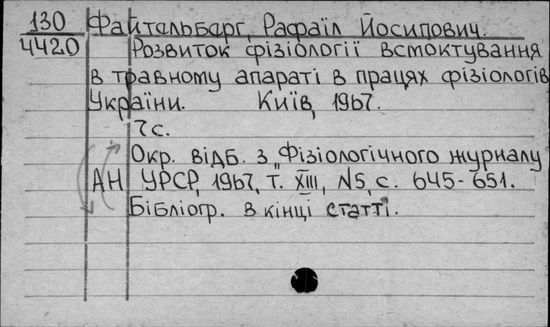 130 Файтельберг, Рафаїл Йосипович.
4420 Розвиток фізіології всмоктування
в травному апараті в працях фізіологів
України. Київ, 1967.
7 с.
Окр. відб. з „Фізіологічного журналу
АН УРСР, 1967, т. XIII, N5, с. 645-651.
Бібліогр. в кінці статті.